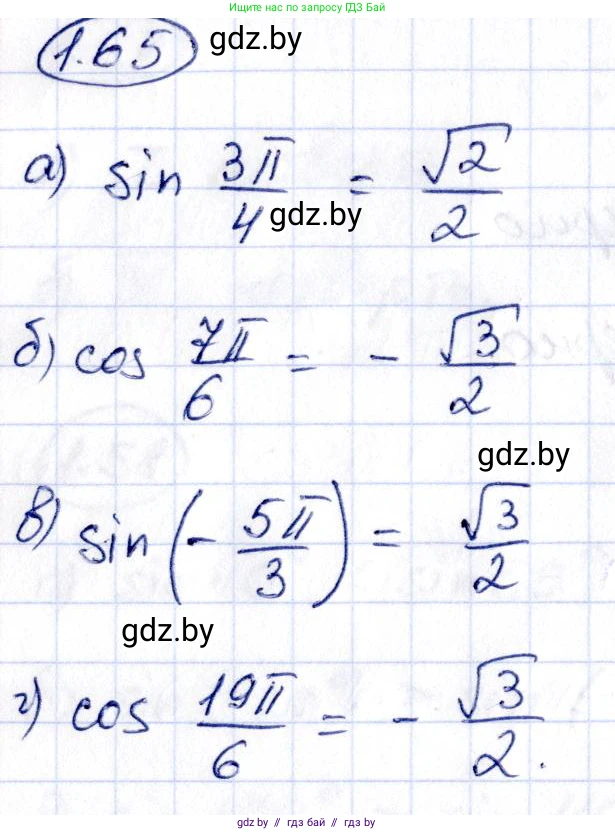 Решено на для поиск по запросу ГДЗ БАЙ
1.65 gdz.by
а) sin 3π/4 = √2/2
gdz.by
б) cos 7π/6 = - √3/2
gdz.by
в) sin(- 5π/3) = √3/2
gdz.by
г) cos 19π/6 = - √3/2.
gdz.by // гдз бай // гдз by